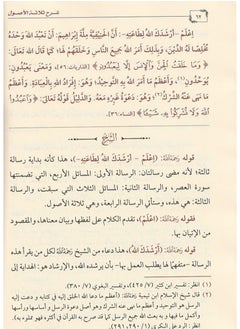 شرح ثلاثة الأصول
٦٢
اِعْلَمْ - أَرْشَدَكَ اللَّهُ لِطَاعَتِهِ -: أَنَّ الحَنِيفِيَّةَ مِلَّةَ إِبْرَاهِيمَ: أَنْ تَعْبُدَ اللَّهَ وَحْدَهُ
مُخْلِصًا لَهُ الدِّينَ، وَبِذَلِكَ أَمَرَ اللَّهُ جَمِيعَ النَّاسِ وَخَلَقَهُمْ لَهَا؛ كَمَا قَالَ اللَّهُ تَعَالَى:
﴿وَمَا خَلَقْتُ الْجِنَّ وَالْإِنسَ إِلَّا لِيَعْبُدُونِ﴾ [الذاريات: ٥٦]، وَمَعْنَى يَعْبُدُونِ:
يُوَحِّدُونِ(١)، وَأَعْظَمُ مَا أَمَرَ اللَّهُ بِهِ التَّوْحِيدُ؛ وَهُوَ: إِفْرَادُ اللَّهِ بِالْعِبَادَةِ، وَأَعْظَمُ
مَا نَهَى عَنْهُ الشِّرْكُ(٢)؛ وَهُوَ: دَعْوَةُ غَيْرِهِ مَعَهُ. وَالدَّلِيلُ قَوْلُهُ تَعَالَى: ﴿وَاعْبُدُوا
اللَّهَ وَلَا تُشْرِكُوا بِهِ شَيْئًا﴾ [النساء: ٣٦].
الشرح
قوله رحمه الله: (اعْلَمْ - أَرْشَدَكَ اللَّهُ لِطَاعَتِهِ -)، هذا كأنه بداية رسالة
ثالثة؛ لأنه مضى رسالتان: الرسالة الأولى: المسائل الأربع، التي تضمنتها
سورة العصر، والرسالة الثانية: المسائل الثلاث التي سبقت، والرسالة
الثالثة: هي هذه، وستأتي الرسالة الرابعة، وهي ثلاثة الأصول.
قوله رحمه الله: (اعْلَمْ)، تقدم الكلام على لفظها وبيان معناها، والمقصود
من الإتيان بها.
قوله رحمه الله: (أَرْشَدَكَ اللَّهُ)، هذا دعاء من الشيخ رحمه الله لكل من يقرأ هذه
الرسالة -متفهمًا لها يطلب العمل بها- بأن يرشده الله، والإرشاد هو: الهداية إلى
(١) انظر: تفسير ابن كثير (٧/ ٤٢٥)، وتفسير البغوي (٧/ ٣٨٠).
(٢) قال شيخ الإسلام ابن تيمية رحمه الله:
انظر: الرد على البكري (١/ ٢٩٠، ٢٩١).